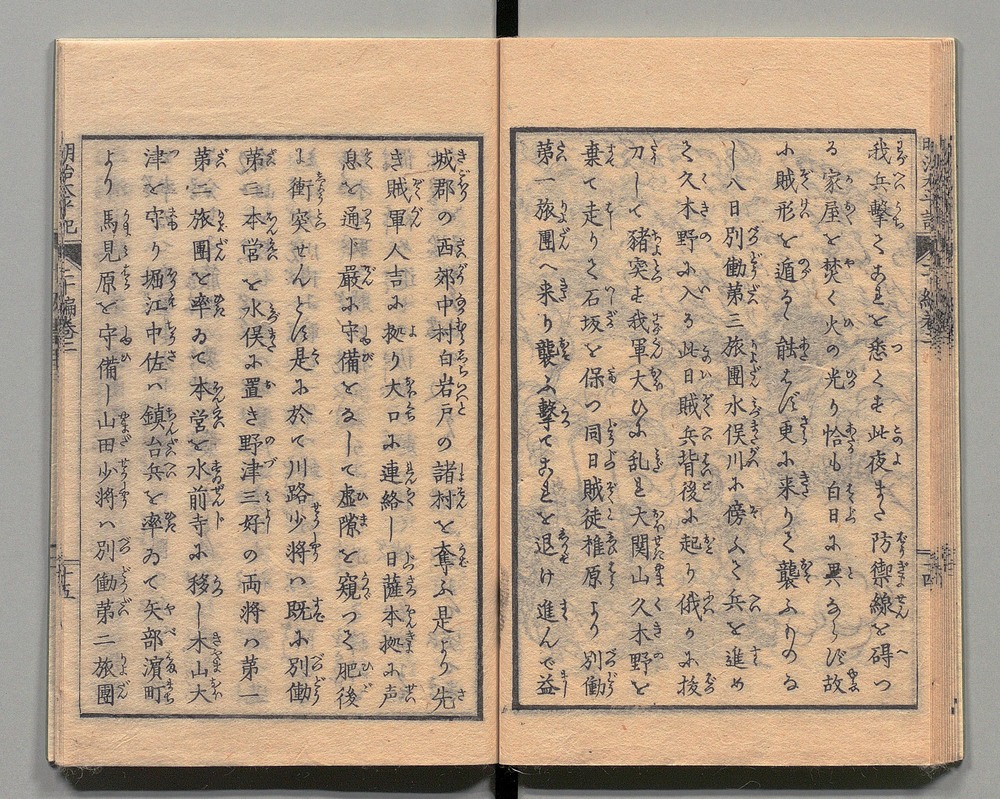 我兵撃てあれを悉くも此夜また防禦線を碍つ
る家屋を焚く火の光り恰も白日に異ならず故
に賊形を遁るゝ能はず更に来りて襲ふものな
し八日別働第三旅團水俣川に傍ふて兵を進め
て久木野に入る此日賊兵背後に起り俄かに抜
刀して猪突す我軍大ひに乱れ大関山久木野を
棄て走りて石坂を保つ同日賊徒椎原より別働
第一旅團へ来り襲ふ撃てこれを退け進んで益
城郡の西郊中村白岩戸の諸村を奪ふ是より先
き賊軍人吉に拠り大口に連絡し日薩本拠に声
息を通じ厳に守備をなして虚隙を窺つて肥後
に衝突せんとす是に於て川路少将ハ既に別働
第三本営を水俣に置き野津三好の両将ハ第一
第二旅團を率ゐて本営を水前寺に移し木山大
津を守り堀江中佐ハ鎮台兵を率ゐて矢部濵町
より馬見原を守備し山田少将ハ別働第二旅團
明治太平記 二十編巻二 十五